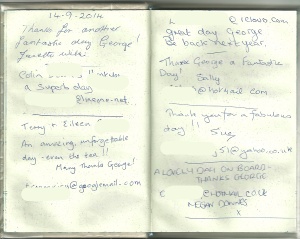 14-9-2014
Thanks for another
fantastic day George!
Colin
a Superb day
Terry & Eileen
An amazing, unforgettable
day - even the tea!!
Many Thanks George!
@googlemail.com
@icloud.com
great day George
Be back next year.
Thanks George a Fantastic
Day! Sally
@hotmail.com
Thank you for a fabulous
day!! Sue,
j51@yahoo.co.uk
A LOVELY DAY ON BOARD-
THANKS GEORGE
x